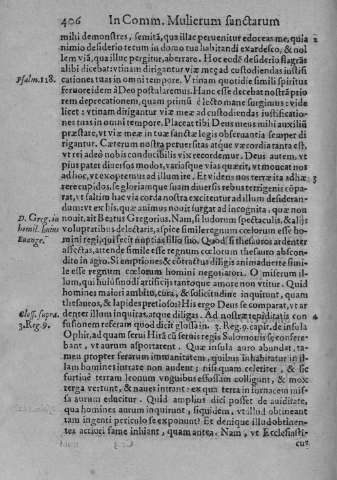 406 In Comm. Mulierum sanctarum
mihi demonstres, semitā, qua illac perveniatur edoceas me, quia 2
nimio desiderio tecum in domo tua habitandi exardesco, & nol
lem viā, qua illuc pergitur, aberrare. Hoc eodē desiderio flagrās
alibi dicebat: vtinam dirigantur viæ meæ ad custodiendas iustifi
Psalm. 118. cationes tuas in omni tempore. Vtinam quotidie simili spiritus
feruore idem à Deo postularemus. Hanc esse debebat nostrā prio
rem deprecationem, quam primū è lecto mane surgimus: vide
licet: vtinam dirigantur viæ meæ ad custodiendas iustificatio-
nes tuas in omni tempore. Placeat tibi Deus meus mihi auxiliū
præstare, vt viæ meæ in tuæ sanctæ legis obseruantia semper di
rigantur. Cæterum nostra peruersitas atque væcordia tanta est,
vt rei adeò nobis conducibilis vix recordemur. Deus autem, vt
pius pater diuersos modos, variasque vias quærit, vt moueat nos
ad hoc, vt exopremus ad illum ire. Et videns nos terræ ita adhæ 3
rere cupidos, se gloriamque suam diuersis rebus terrigenis cōpa-
rat, vt saltim hac via corda nostra excitentur ad illum desideran-
dum: vt ex his, quæ animus nouit surgat ad incognita, quæ non
D. Greg. in nouit, ait Beatus Gregorius. Nam, si ludorum spectaculis, & alijs
homil. huius voluptatibus delectaris, aspice simile regnum cœlorum esse ho-
Euange. mini regi, qui fecit nuptias filio suo. Quod si thesauros ardenter
affectas, attende simile esse regnum cœlorum thesauro abscon-
dito in agro. Si emptiones & cōtractus diligis animaduerte simi-
le esse regnum cœlorum homini negotiatori. O miserum il-
lum, qui huiusmodi artificijs tantoque amore non vtitur. Quid
homines maiori ambitu, cura, & solicitudine inquirunt, quam
thesauros, & lapides pretiosos? His ergo Deus se comparat, vt ar
Gloss. supra. denter illum inquiras, atque diligas. Ad nostræ tepiditatis con 4
3. Reg. 9. fusionem referam quod dicit glossa in 3. Reg. 9. capit. de insula
Ophir, ad quam serui Hirā cū seruis regis Salomonis se confere-
bant, vt aurum asportarent. Quæ insula auro abundat, ta-
meu propter ferarum immanitatem, quibus inhabitatur in il-
lam homines intrare non audent; nisi quam celeriter, & sic
furtiuè terram leonum vnguibus effossam colligunt, & mox
terga vertunt, & naues introeunt: ex qua terra in fornacem mis-
sa aurum educitur. Quid amplius dici posset de auiditate,
qua homines aurum inquirunt, siquidem, vt illud obtineant
tam ingenti periculo se exponunt? Et denique illud obtinen-
tes actiuri fame inhiant, quam antea. Nam, vt Ecclesiasti-
cus